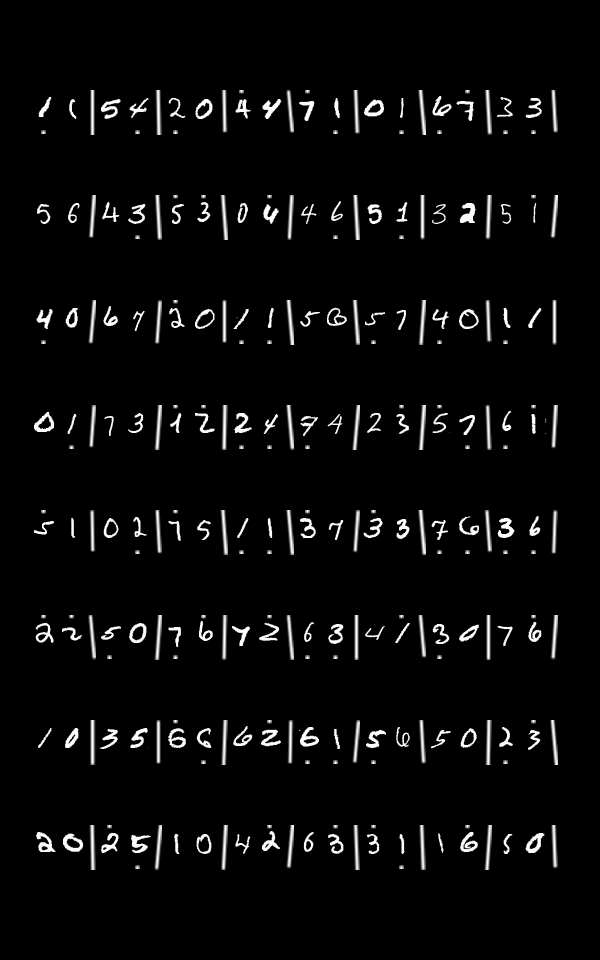 1 1 | 5 4 | 2 0 | 4 4 | 7 1 | 0 1 | 6 7 | 3 3 |
5 6 | 4 3 | 5 3 | 0 4 | 4 6 | 5 1 | 3 2 | 5 1 |
4 0 | 6 7 | 2 0 | 1 1 | 5 6 | 5 7 | 4 0 | 1 1 |
0 1 | 7 3 | 1 2 | 2 4 | 7 4 | 2 3 | 5 7 | 6 1 |
5 1 | 0 2 | 7 5 | 1 1 | 3 7 | 3 3 | 7 6 | 3 6 |
2 2 | 5 0 | 7 6 | 4 2 | 6 3 | 4 1 | 3 0 | 7 6 |
1 0 | 3 5 | 6 6 | 6 2 | 6 1 | 5 6 | 5 0 | 2 3 |
2 0 | 2 5 | 1 0 | 4 2 | 6 3 | 3 1 | 1 6 | 5 0 |